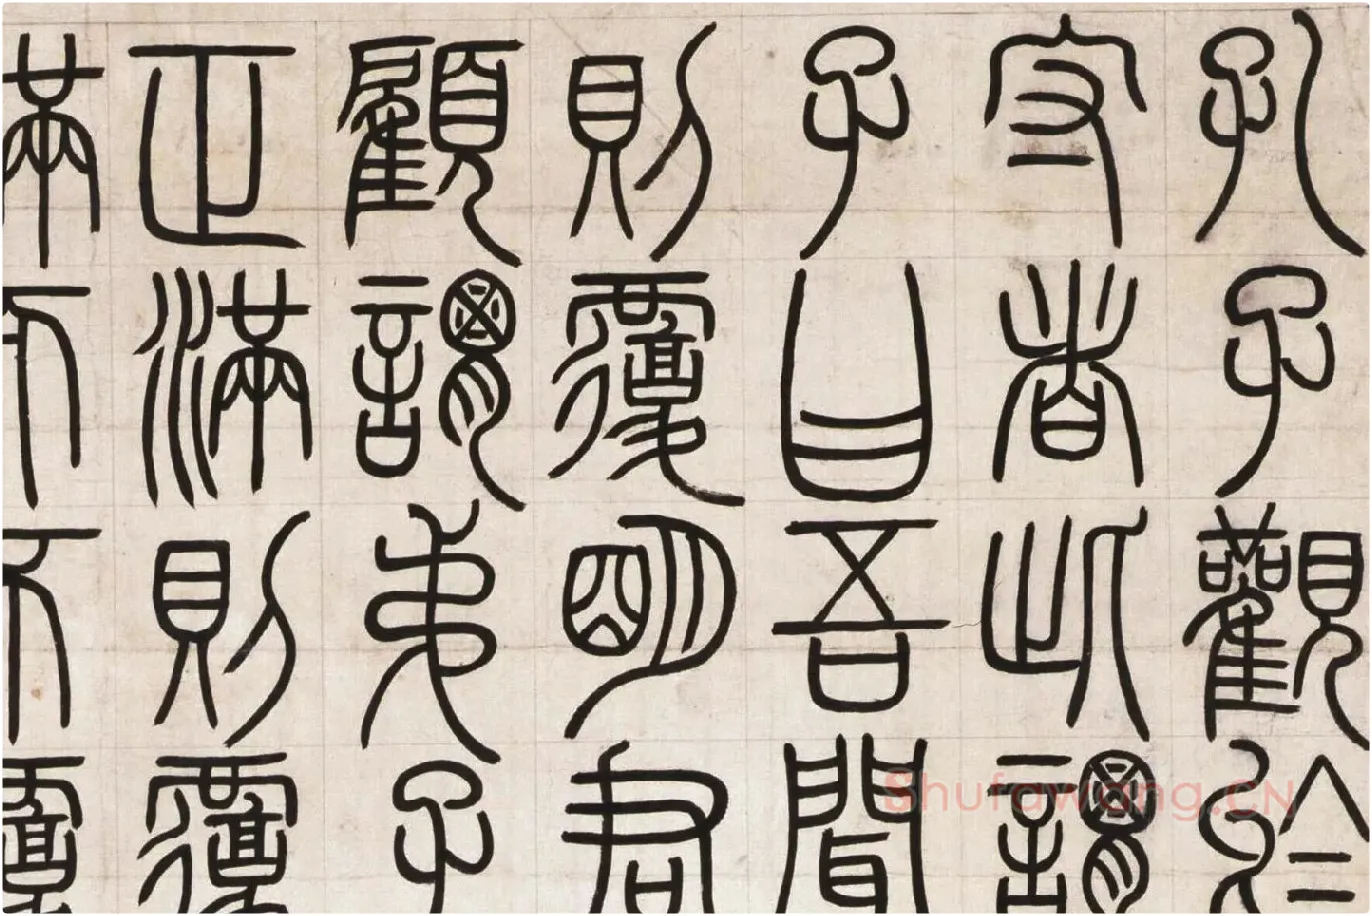 孔子觀於
守者此謂
子曰吾聞
則覆明君
顧謂弟子
正滿則覆
滿而不覆
Shufawang.CN